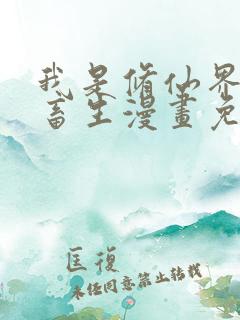 我是修仙界
畜生漫畫免
匡復
未經同意禁止轉載